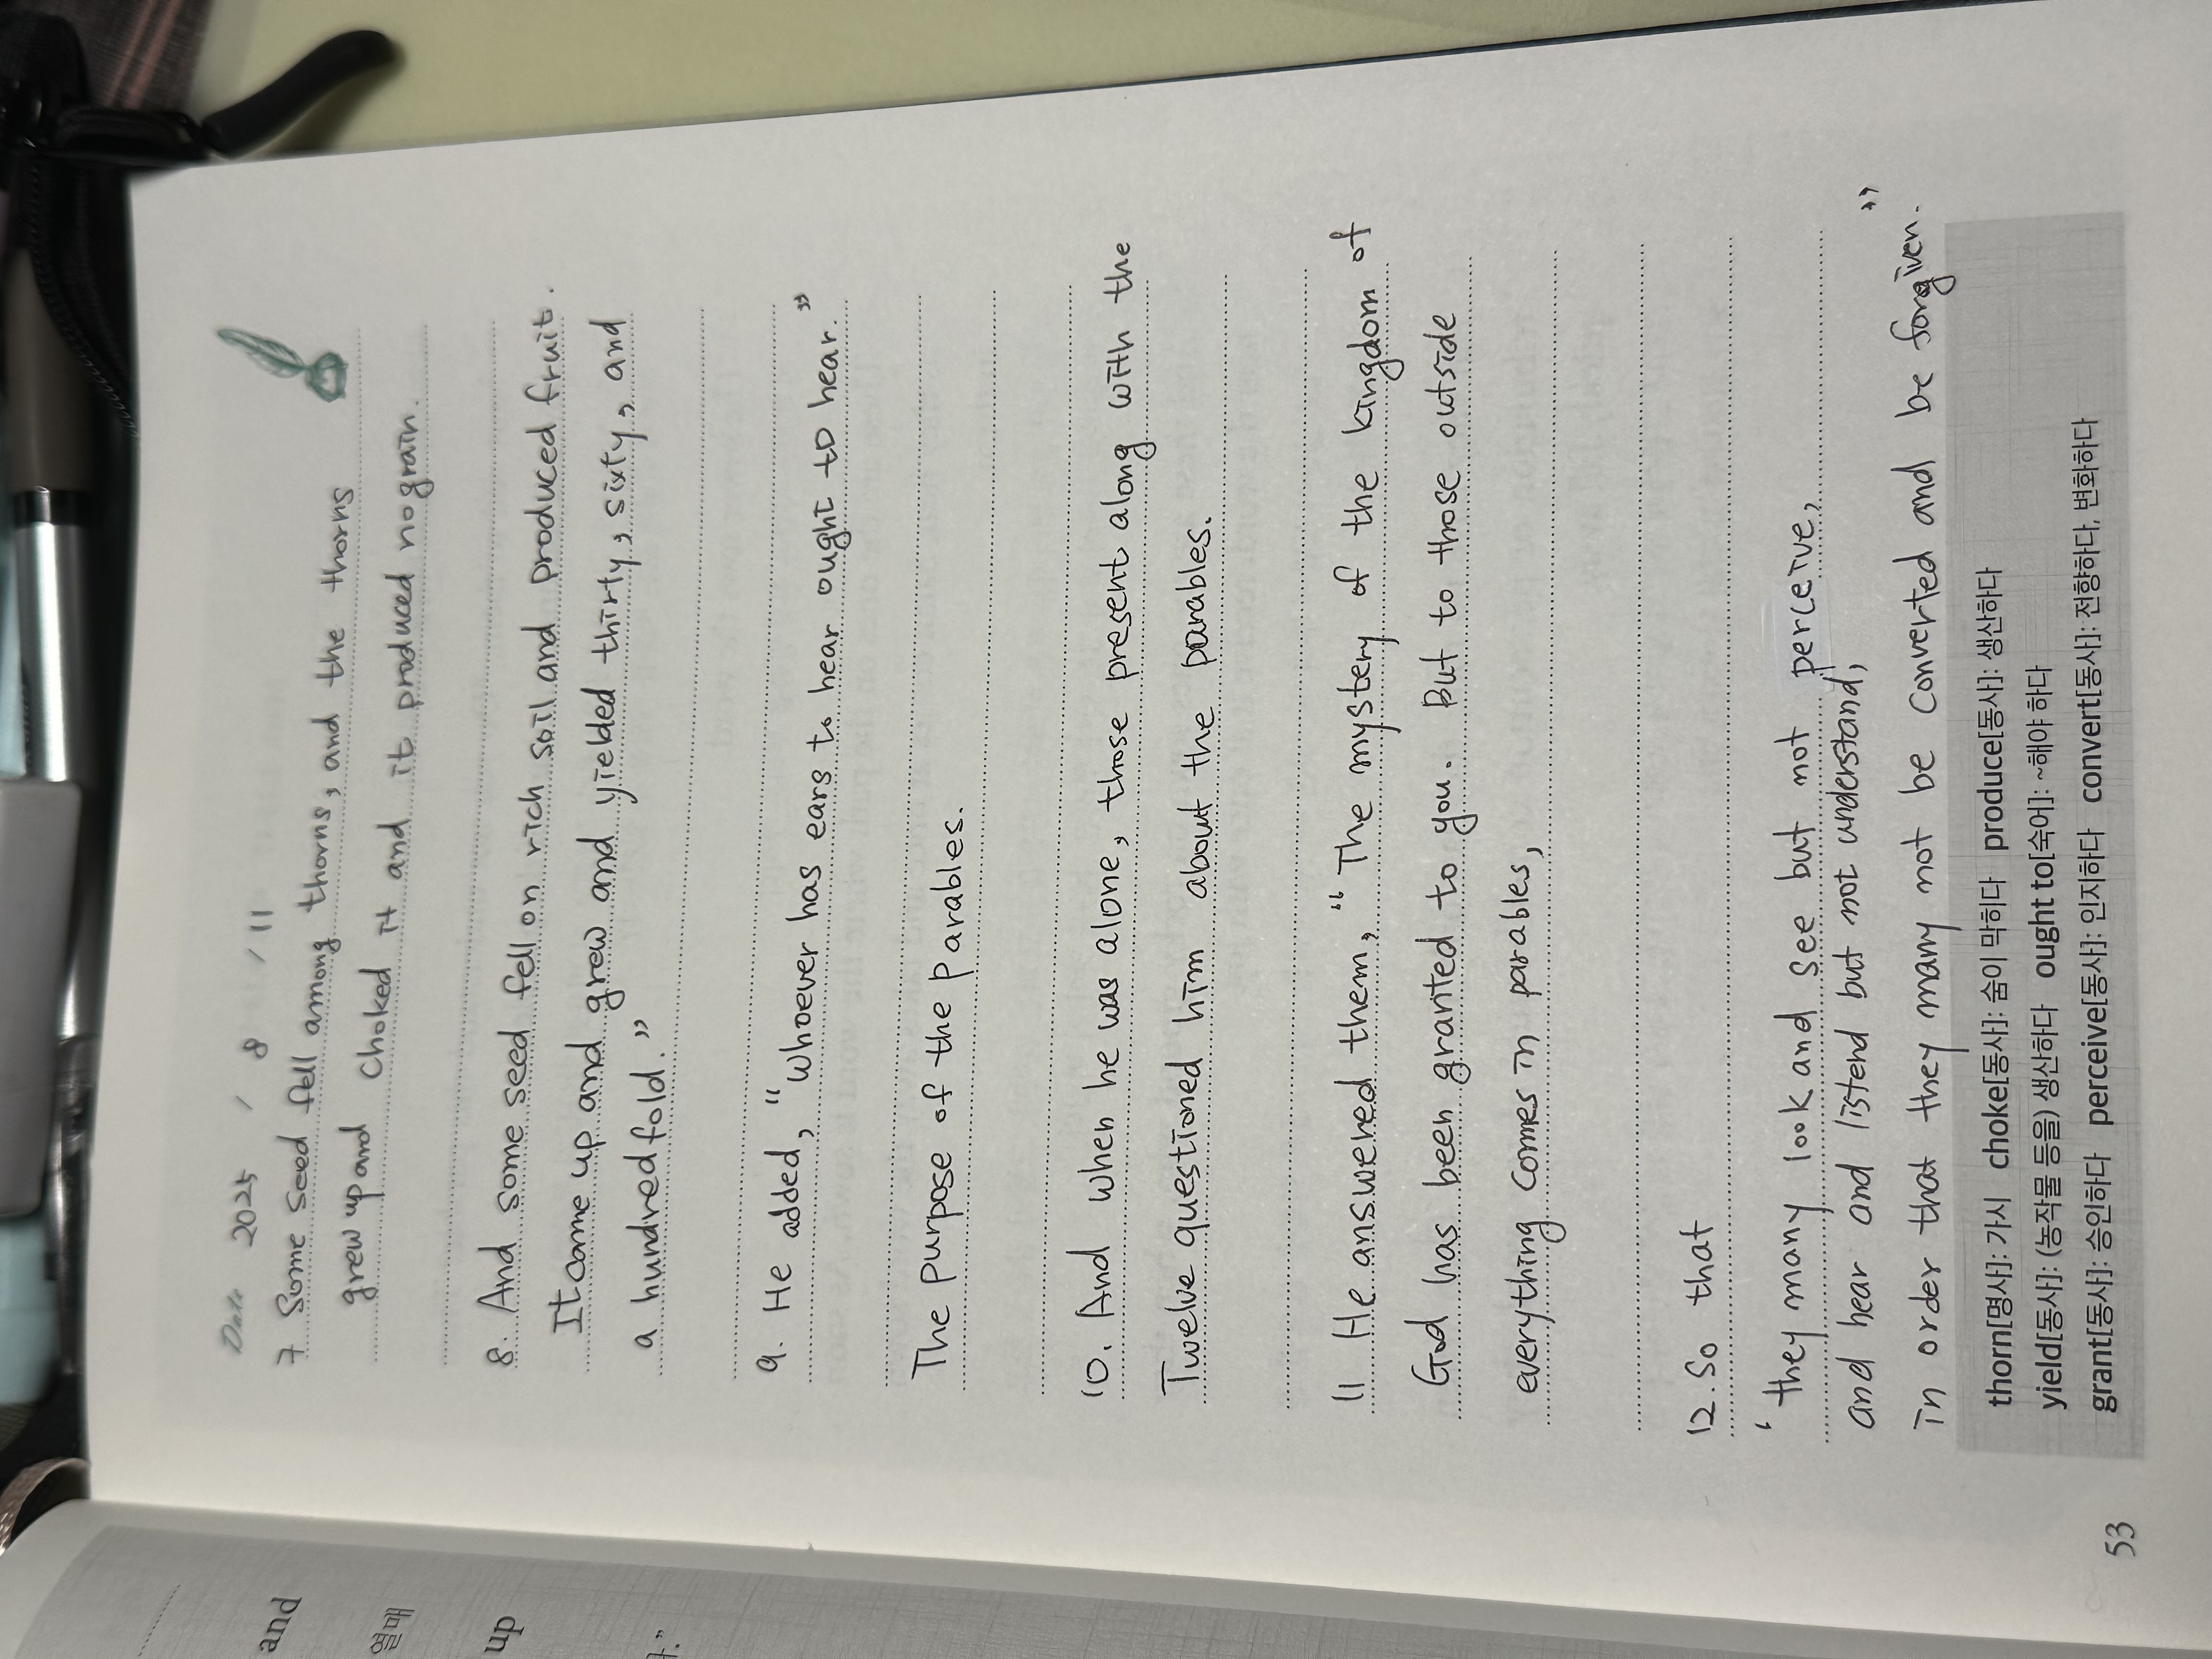 Date 2025 / 8 / 11
7 Some seed fell among thorns, and the thorns
grew up and choked it and it produced no grain.
8. And some seed fell on rich soil and produced fruit.
It came up and grew and yielded thirty, sixty, and
a hundredfold."
9. He added, "Whoever has ears to hear ought to hear."
The purpose of the Parables.
10. And when he was alone, those present along with the
Twelve questioned him about the parables.
11 He answered them, "The mystery of the kingdom of
God has been granted to you. But to those outside
everything comes in parables,
12. So that
'they many look and see but not perceive,
and hear and listend but not understand,
in order that they many not be converted and be forgiven.'"
thorn[명사]: 가시 choke[동사]: 숨이 막히다 produce[동사]: 생산하다
yield[동사]: (농작물 등을) 생산하다 ought to[숙어]: ~해야 하다
grant[동사]: 승인하다 perceive[동사]: 인지하다 convert[동사]: 전향하다, 변화하다
53
and
열매
up